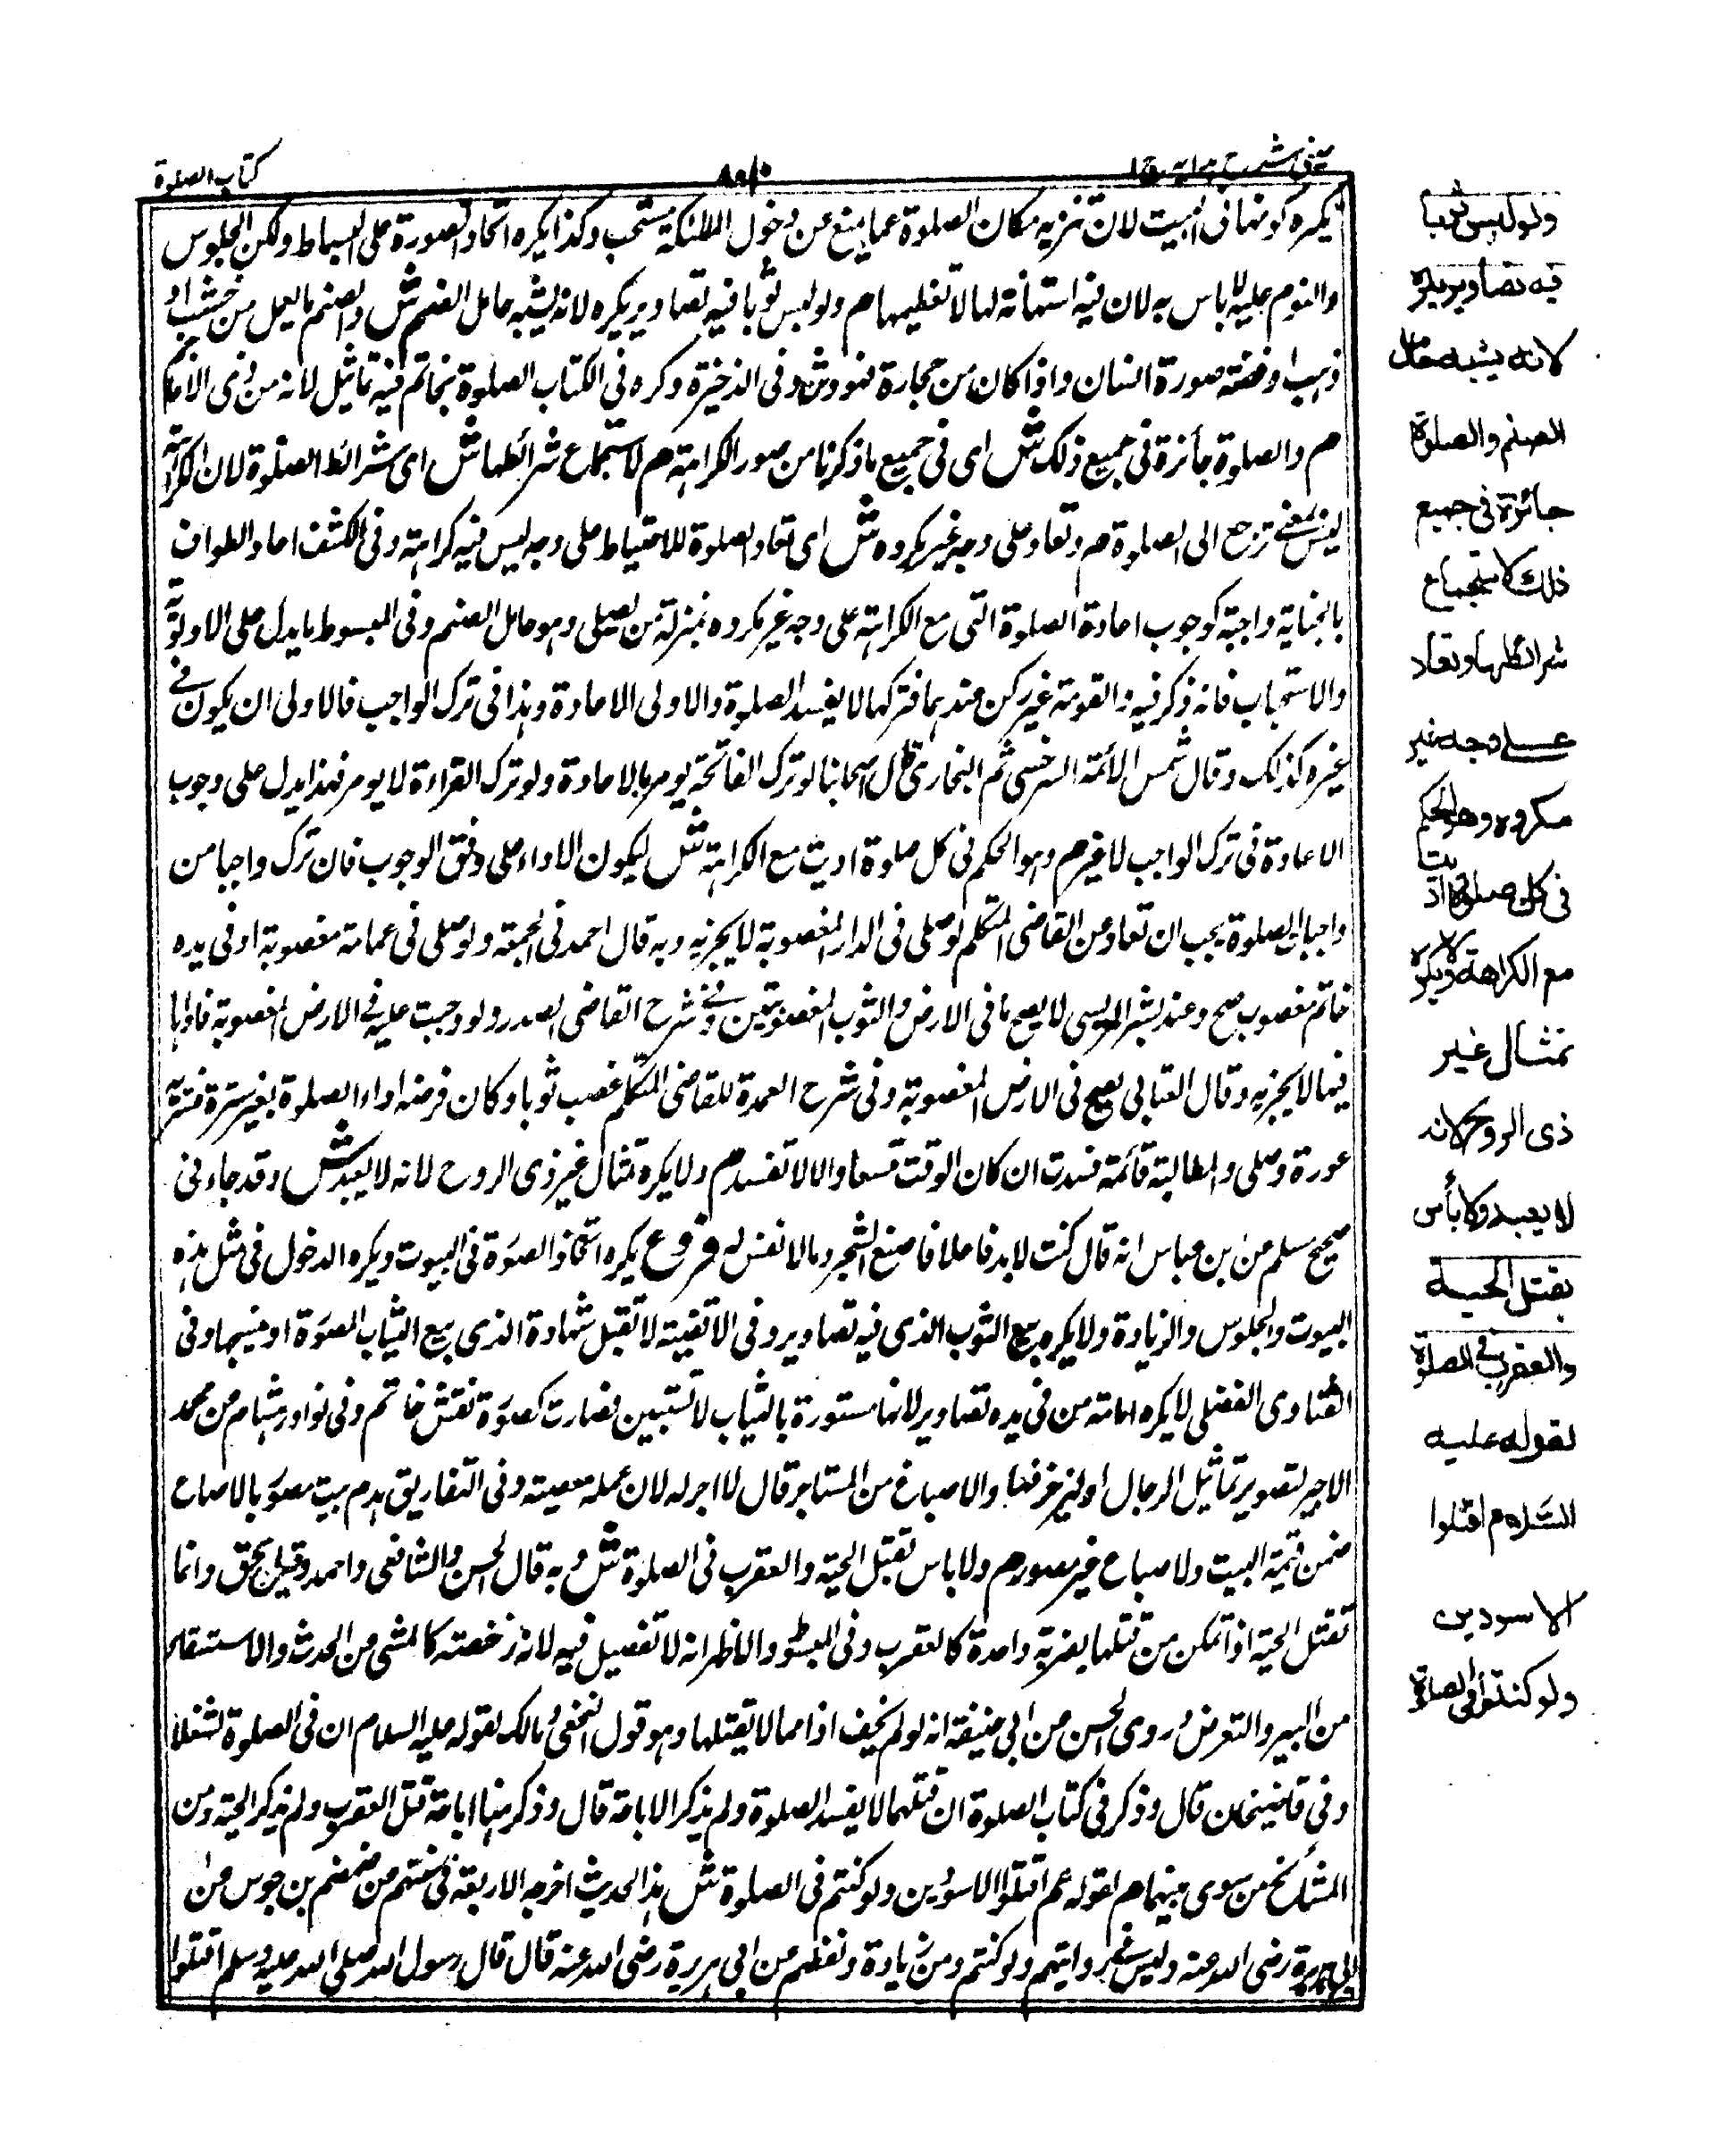 عینی شرح ہدایہ ج ١
كتاب الصلوة
يكره كونها فى البيت لان تنزيه مكان الصلوة عما يمنع عن دخول الملائكة مستحب وكذا يكره اتخاذ الصورة على البساط ولكن الجلوس
والنوم عليه لا باس به لان فيه استهانة لها لا تعظيمها م ولو لبس ثوبا فيه تصاوير يكره لانه يشبه حامل الصنم ش والصنم ما يعمل من خشب او
ذهب او فضة صورة انسان واذا كان من حجارة فهو وثن وفى الذخيرة وكره فى الكتاب الصلوة بخاتم فيه تماثيل لانه من زى الاعاجم
م والصلوة جائزة فى جميع ذلك ش اى فى جميع ما ذكرنا من صور الكراهة م لاستجماع شرائطها ش اى شرائط الصلوة لان الكراهة
ليس لمعنى ترجع الى الصلوة م وتعاد على وجه غير مكروه ش اى تعاد الصلوة للاحتياط على وجه ليس فيه كراهة وفى الكشف اعاد الطواف
بالجناية واجبة كوجوب اعادة الصلوة التى مع الكراهة على وجه غير مكروه بمنزلة من يصلى وهو حامل الصنم وفى المبسوط ما يدل على الاولوية
والاستحباب فانه ذكر فيه والقومة غير ركن عندهما فتركها لا يفسد الصلوة والاولى الاعادة وهذا فى ترك الواجب فالاولى ان يكون فى
غيره كذلك وقال شمس الائمة السرخسى ثم البخارى قال اصحابنا لو ترك الفاتحة يومر بالاعادة ولو ترك القراءة لا يومر فهذا يدل على وجوب
الاعادة فى ترك الواجب لا غير م وهو الحكم فى كل صلوة اديت مع الكراهة ش ليكون الاداء على وفق الوجوب فان ترك واجبا من
واجبات الصلوة يجب ان تعاد وعن القاضى المتكلم لو صلى فى الدار المغصوبة لا يجزيه وبه قال احمد فى الجمعة ولو صلى فى عمامة مغصوبة او فى يده
خاتم مغصوب صح وعند بشر المريسى لا يصح ما فى الارض والثوب المغصوبتين وفى شرح القاضى الصدر ولو وجبت عليه فى الارض المغصوبة فاداها
فيها لا يجزيه وقال العتابى يصح فى الارض المغصوبة وفى شرح العمدة للقاضى المتكلم غصب ثوبا وكان فرضه اداء الصلوة بغير سترة فستر به
عورة وصلى والمطالبة قائمة فسدت ان كان الوقت متسعا والا لا تفسد م ولا يكره تمثال غير ذى الروح لانه لا يعبد ش وقد جاء فى
صحيح مسلم عن بن عباس انه قال كنت لا بد فاعلا فاصنع الشجر وما لا نفس له فروع يكره اتخاذ الصورة فى البيوت ويكره الدخول فى مثل هذه
البيوت والجلوس والزيادة ولا يكره بيع الثوب الذى فيه تصاوير وفى الاقضية لا تقبل شهادة الذى يبيع الثياب المصورة او ينسجها وفى
الفتاوى الفضلى لا يكره امامة من فى يده تصاوير لانها مستورة بالثياب لا تستبين فصارت كصورة نقش خاتم وفى نوادر هشام عن محمد
الاجير لتصوير تماثيل الرجال او ليزخرفها والاصباغ من المستاجر قال لا اجر له لان عمله معصية وفى التفاريق هدم بيت مصور بالاصباغ
ضمن قيمة البيت ولا صباغ غير مصور م ولا باس بقتل الحية والعقرب فى الصلوة ش وبه قال الحسن والشافعى واحمد وقيل بحق وانما
تقتل الحية اذا تمكن من قتلها بضربة واحدة كالعقرب وفى المبسوط والاظهر انه لا تفصيل فيه لانه رخصته كالمشى من الحدث والاستقاء
من البير والتعرض وروى الحسن عن ابى حنيفة انه لو لم يخف اذاهما لا يقتلها وهو قول النخعى ومالك لقوله عليه السلام ان فى الصلوة لشغلا
وفى قاضيخان قال وذكر فى كتاب الصلوة ان قتلهما لا يفسد الصلوة ولم يذكر الاباحة قال وذكر هنا اباحة قتل العقرب ولم يذكر الحية ومن
المشائخ من سوى بينهما م لقوله عم اقتلوا الاسودين ولو كنتم فى الصلوة ش هذا الحديث اخرجه الاربعة فى سننهم عن ضمضم بن جوس عن
ابى هريرة رضى الله عنه وليس فى روايتهم ولو كنتم ومن زيادة ولفظهم عن ابى هريرة رضى الله عنه قال قال رسول الله صلى الله عليه وسلم اقتلوا
ولو لبس ثوبا
فيه تصاوير يكره
لانه يشبه حامل
الصنم والصلوة
جائزة فى جميع
ذلك لاستجماع
شرائطها وتعاد
على وجه غير
مكروه وهو الحكم
فى كل صلوة اديت
مع الكراهة ولا يكره
تمثال غير
ذى الروح لانه
لا يعبد ولا بأس
بقتل الحية
والعقرب فى الصلوة
لقوله عليه
السلام اقتلوا
الاسودين
ولو كنتم فى الصلوة